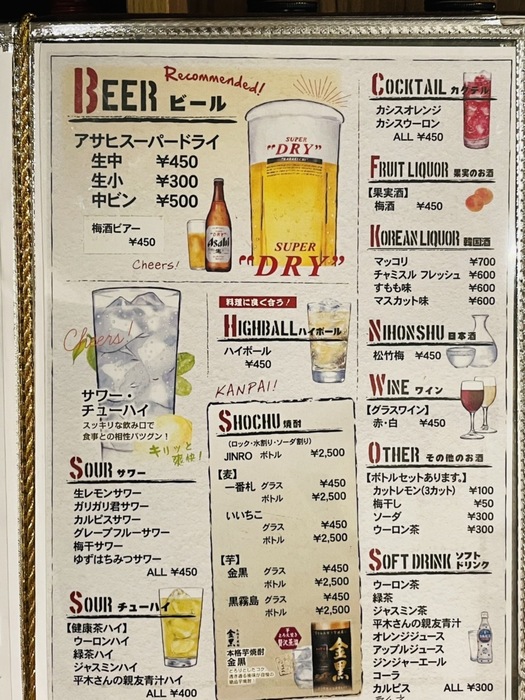 BEER ビール
Recommended!
アサヒスーパードライ
生中 ¥450
生小 ¥300
中ビン ¥500
梅酒ビアー
¥450
Cheers!
SUPER
"DRY"
Asahi
SUPER
"DRY"
Cheers!
サワー・
チューハイ
スッキリな飲み口で
食事との相性バツグン!
キリッと
爽快!
SOUR サワー
生レモンサワー
ガリガリ君サワー
カルピスサワー
グレープフルーサワー
梅干サワー
ゆずはちみつサワー
ALL ¥450
SOUR チューハイ
【健康茶ハイ】
ウーロンハイ
緑茶ハイ
ジャスミンハイ
平木さんの親友青汁ハイ
ALL ¥400
料理に良く合う!
HIGHBALL ハイボール
ハイボール
¥450
KANPAI!
SHOCHU 焼酎
(ロック・水割り・ソーダ割り)
JINRO ボトル ¥2,500
【麦】
一番札 グラス ¥450
ボトル ¥2,500
いいちこ
グラス ¥450
ボトル ¥2,500
【芋】
金黒 グラス ¥450
ボトル ¥2,500
黒霧島 グラス ¥450
ボトル ¥2,500
金黒
本格芋焼酎
金黒
とろ〜え焼き
贅沢蒸溜
金黒
COCKTAIL カクテル
カシスオレンジ
カシスウーロン
ALL ¥450
FRUIT LIQUOR 果実のお酒
【果実酒】
梅酒 ¥450
KOREAN LIQUOR 韓国酒
マッコリ ¥700
チャミスル フレッシュ ¥600
すもも味 ¥600
マスカット味 ¥600
NIHONSHU 日本酒
松竹梅 ¥450
WINE ワイン
【グラスワイン】
赤・白 ¥450
OTHER その他のお酒
【ボトルセットあります。】
カットレモン(3カット) ¥100
梅干し ¥50
ソーダ ¥300
ウーロン茶 ¥300
SOFT DRINK ソフトドリンク
ウーロン茶
緑茶
ジャスミン茶
平木さんの親友青汁
オレンジジュース
アップルジュース
ジンジャーエール
コーラ
カルピス ALL ¥300